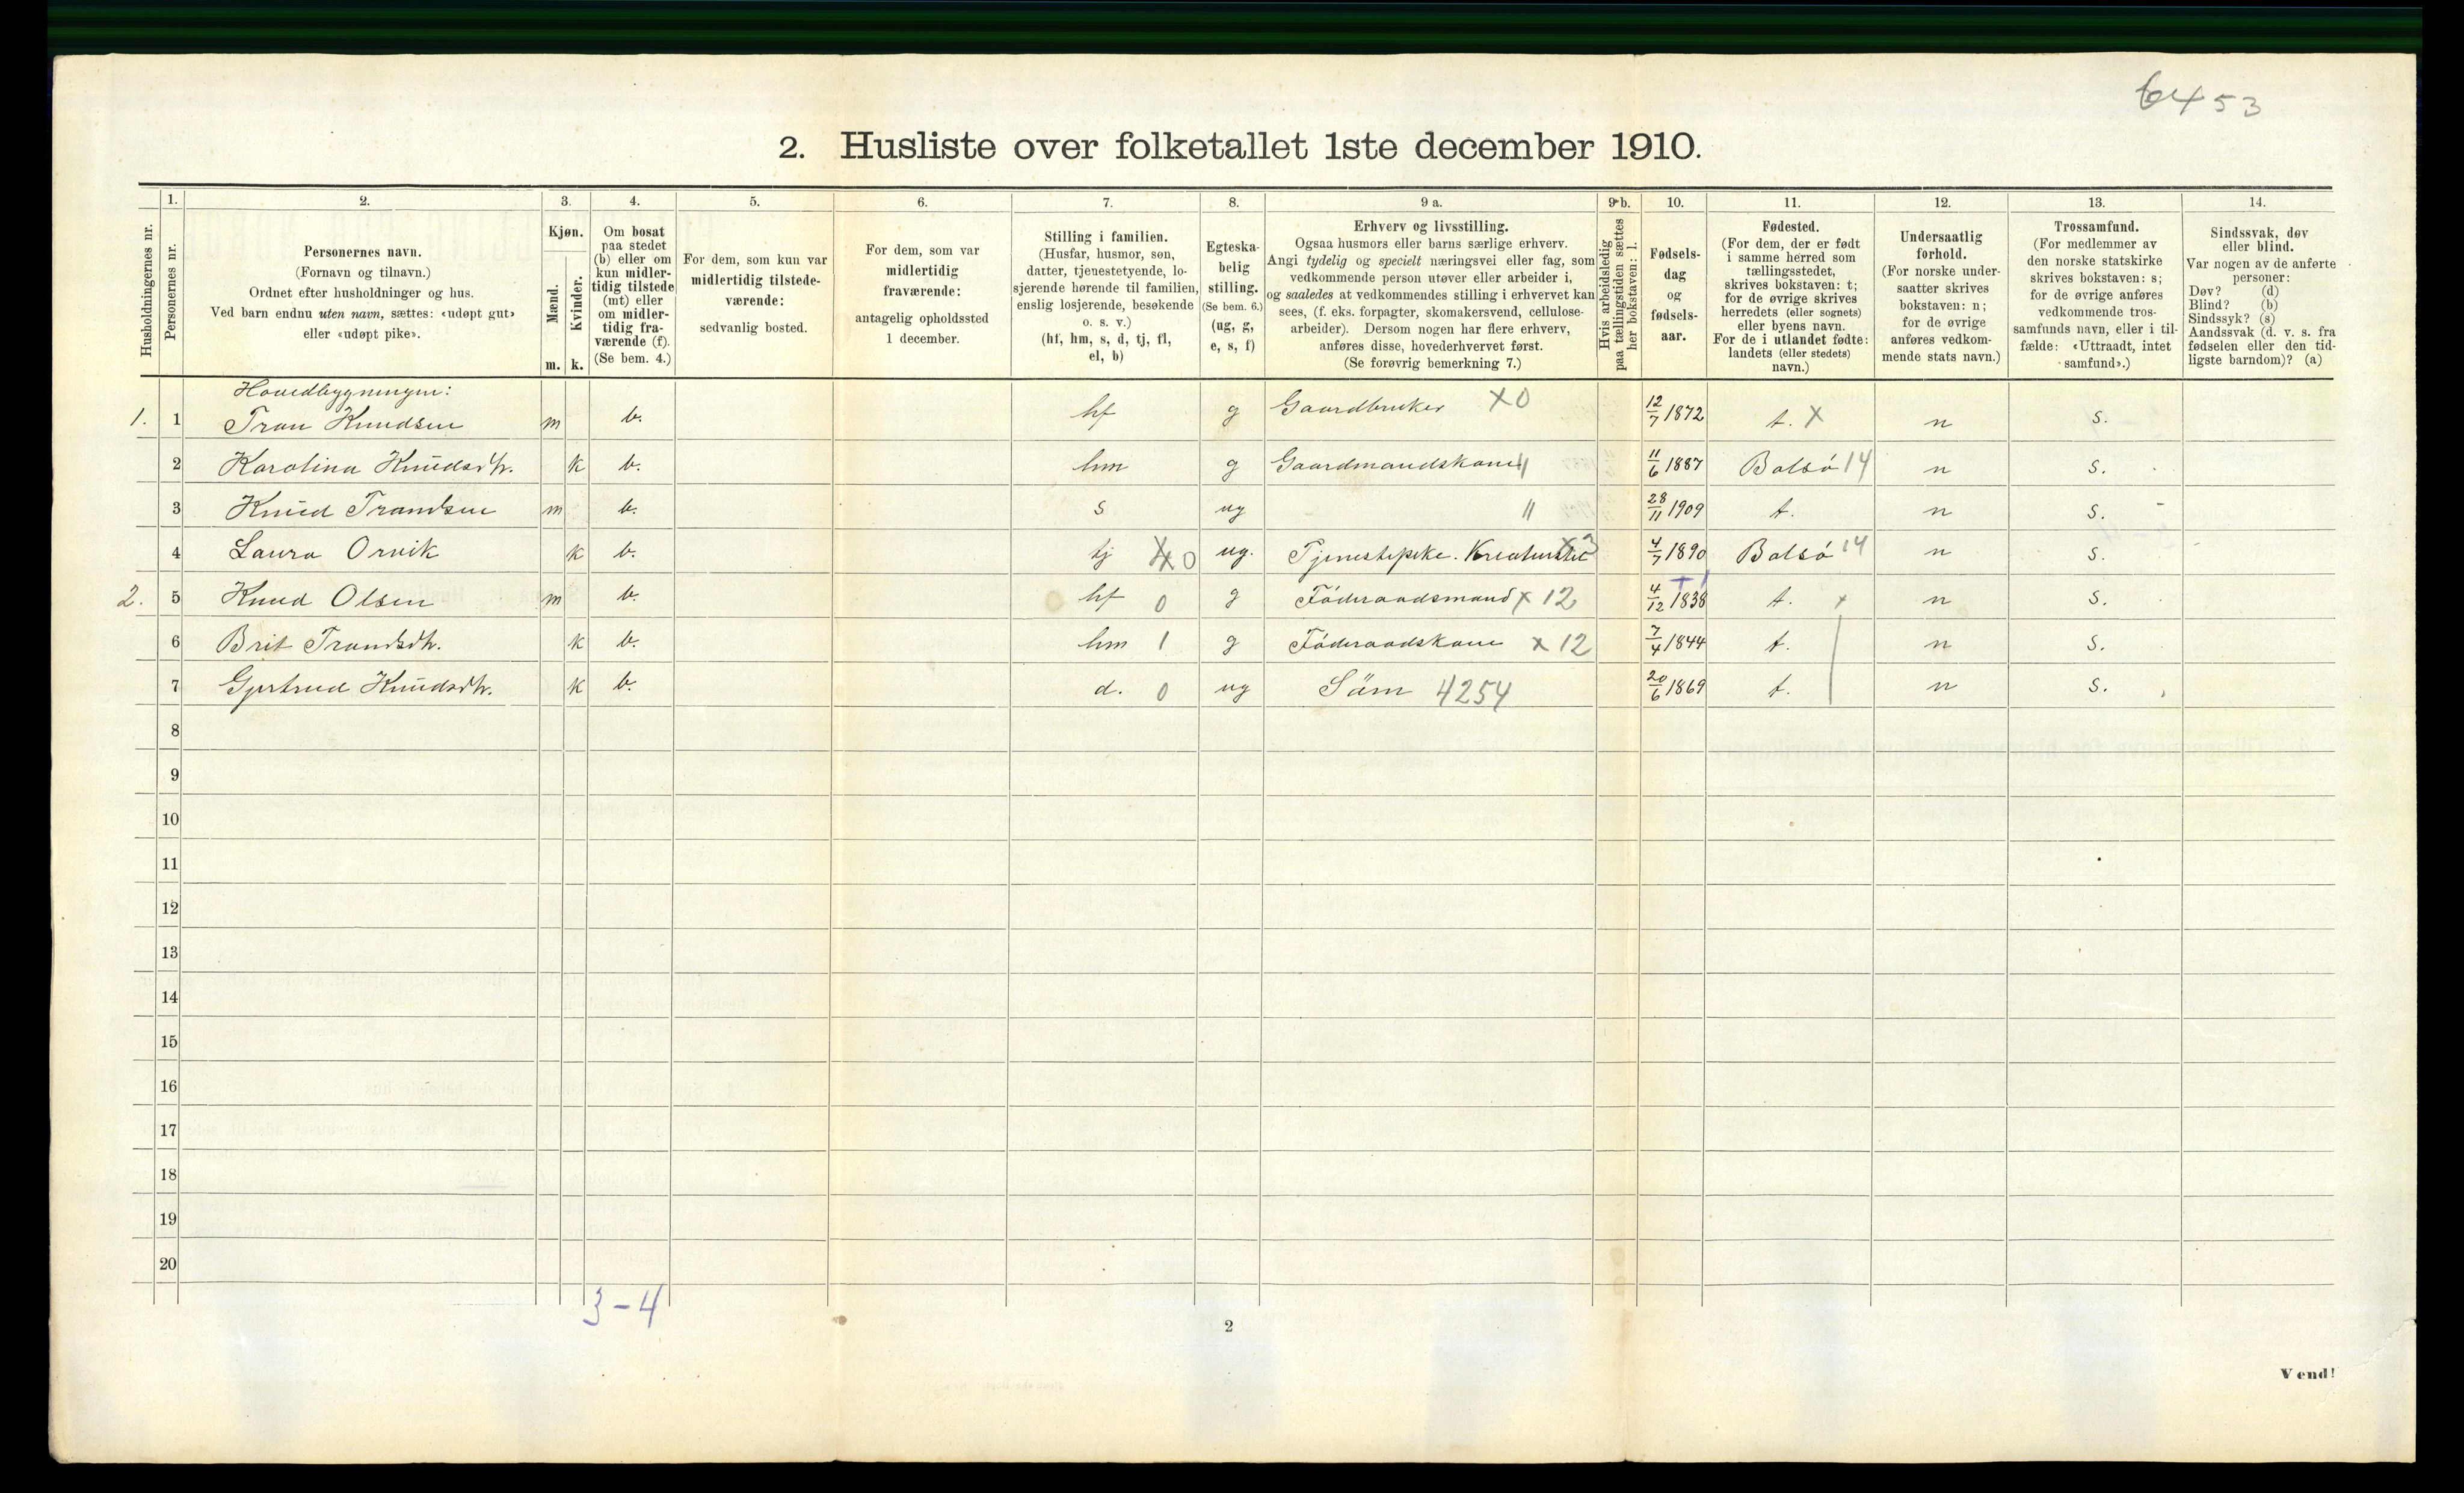 6453
2. Husliste over folketallet 1ste december 1910.
Husholdningernes nr.
1.
Personernes nr.
2.
Personernes navn.
(Fornavn og tilnavn.)
Ordnet efter husholdninger og hus.
Ved barn endnu uten navn, sættes: «udøpt gut»
eller «udøpt pike».
3.
Kjøn.
Mænd.
Kvinder.
m. k.
4.
Om bosat
paa stedet
(b) eller om
kun midler-
tidig tilstede
(mt) eller
om midler-
tidig fra-
værende (f).
(Se bem. 4.)
5.
For dem, som kun var
midlertidig tilstede-
værende:
sedvanlig bosted.
6.
For dem, som var
midlertidig
fraværende:
antagelig opholdssted
1 december.
7.
Stilling i familien.
(Husfar, husmor, søn,
datter, tjenestetyende, lo-
sjerende hørende til familien,
enslig losjerende, besøkende
o. s. v.)
(hf, hm, s, d, tj, fl,
el, b)
8.
Egteska-
belig
stilling.
(Se bem. 6.)
(ug, g,
e, s, f)
9 a.
Erhverv og livsstilling.
Ogsaa husmors eller barns særlige erhverv.
Angi tydelig og specielt næringsvei eller fag, som
vedkommende person utøver eller arbeider i,
og saaledes at vedkommendes stilling i erhvervet kan
sees, (f. eks. forpagter, skomakersvend, cellulose-
arbeider). Dersom nogen har flere erhverv,
anføres disse, hovederhvervet først.
(Se forøvrig bemerkning 7.)
9 b.
Hvis arbeidsledig
paa tællingstiden sættes
her bokstaven: l.
10.
Fødsels-
dag
og
fødsels-
aar.
11.
Fødested.
(For dem, der er født
i samme herred som
tællingsstedet,
skrives bokstaven: t;
for de øvrige skrives
herredets (eller sognets)
eller byens navn.
For de i utlandet fødte:
landets (eller stedets)
navn.)
12.
Undersaatlig
forhold.
(For norske under-
saatter skrives
bokstaven: n;
for de øvrige
anføres vedkom-
mende stats navn.)
13.
Trossamfund.
(For medlemmer av
den norske statskirke
skrives bokstaven: s;
for de øvrige anføres
vedkommende tros-
samfunds navn, eller i til-
fælde: «Uttraadt, intet
samfund».)
14.
Sindssvak, døv
eller blind.
Var nogen av de anførte
personer:
Døv? (d)
Blind? (b)
Sindssyk? (s)
Aandssvak (d. v. s. fra
fødselen eller den tid-
ligste barndom)? (a)
Hovedbygningen:
1. 1 Tron Knudsen m b. hf g Gaardbruker X0 12/7 1872 t. X n s.
2 Karolina Knudsdtr. k b. hm g Gaardmandskone 11/6 1887 Bolsø 14 n s.
3 Knud Transen m b. s ug " 28/11 1909 t. n s.
4 Laura Orvik k b. tj 0 ug. Tjenestepike. Kreaturstel X3 4/7 1890 Bolsø 14 n s.
2. 5 Knud Olsen m b. hf 0 g Føderaadsmand x 12 4/12 1838 t. x n s.
6 Brit Transdtr. k b. hm 1 g Føderaadskone x 12 7/4 1844 t. n s.
7 Gjertrud Knudsdtr. k b. d. 0 ug Søm 4254 20/6 1869 t. n s.
8
9
10
11
12
13
14
15
16
17
18
19
20
3-4
2
Vend!